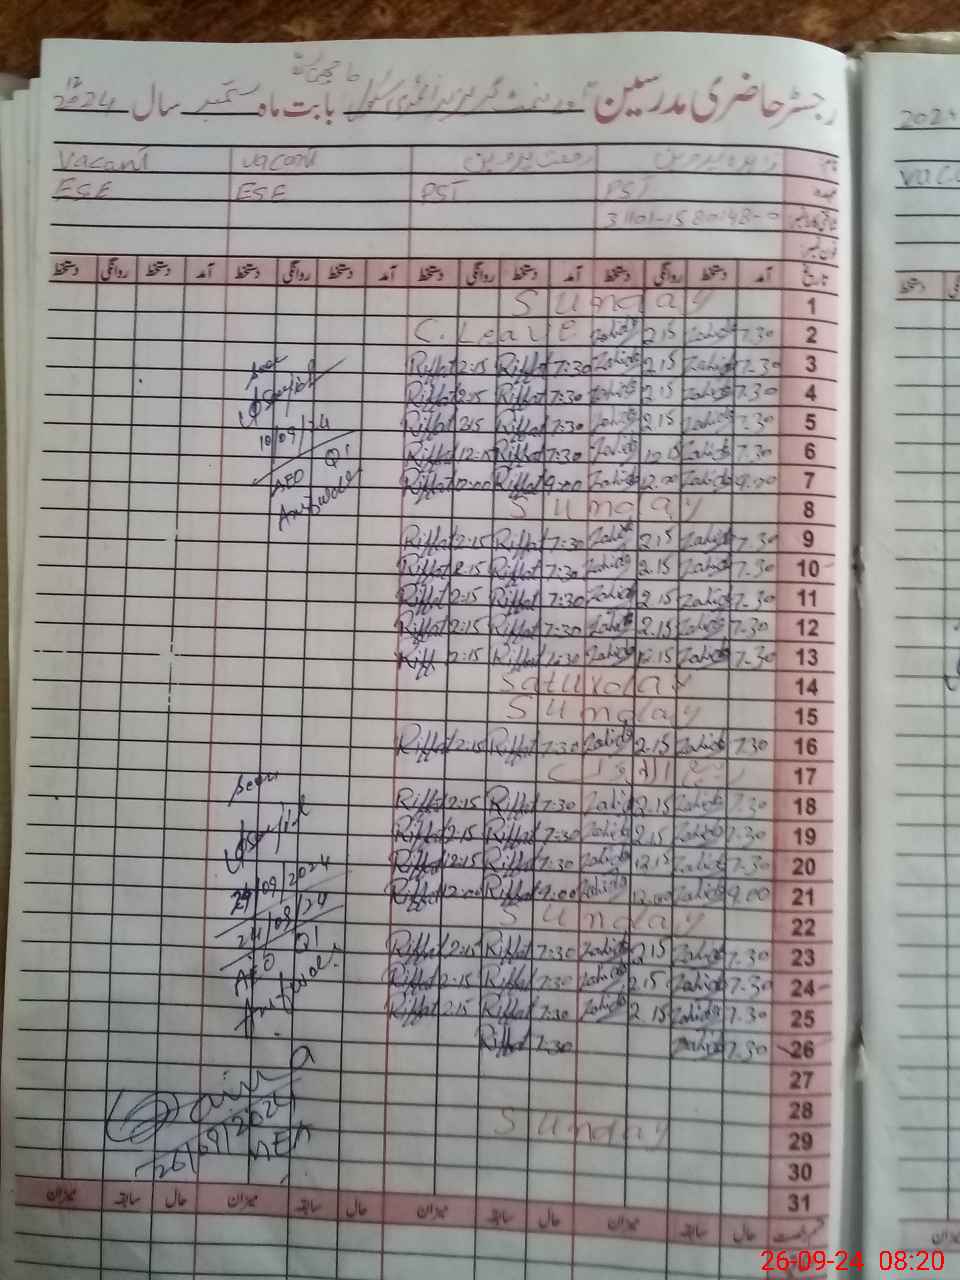 رجسٹر حاضری مدرسین گورنمنٹ گرلز پرائمری سکول بابت ماہ ستمبر سال 2024
نام زاہدہ پروین رفعت پروین Vacant Vacant
عہدہ PST PST ESE ESE
31101-1580148-0
تاریخ آمد دستخط روانگی دستخط آمد دستخط روانگی دستخط آمد دستخط روانگی دستخط آمد دستخط روانگی دستخط
1 Sunday
2 7.30 Zahida 2.15 Zahida C. Leave
3 7.30 Zahida 2.15 Zahida 7:30 Riffat 2:15 Riffat
4 7.30 Zahida 2.15 Zahida 7:30 Riffat 2:15 Riffat
5 7.30 Zahida 2.15 Zahida 7:30 Riffat 2:15 Riffat
10/09/24
6 7.30 Zahida 12.15 Zahida 7:30 Riffat 12:15 Riffat
7 9.00 Zahida 12.00 Zahida 9:00 Riffat 12:00 Riffat
AEO
8 Sunday
9 7.30 Zahida 2.15 Zahida 7:30 Riffat 2:15 Riffat
10 7.30 Zahida 2.15 Zahida 7:30 Riffat 2:15 Riffat
11 7.30 Zahida 2.15 Zahida 7:30 Riffat 2:15 Riffat
12 7.30 Zahida 2.15 Zahida 7:30 Riffat 2:15 Riffat
13 7.30 Zahida 12.15 Zahida 7:30 Riffat 2:15 Riff
14 Saturday
15 Sunday
16 7.30 Zahida 2.15 Zahida 7:30 Riffat 2:15 Riffat
17 ربیع الاول
seen
18 7.30 Zahida 2.15 Zahida 7:30 Riffat 2:15 Riffat
19 7.30 Zahida 2.15 Zahida 7:30 Riffat 2:15 Riffat
20 7.30 Zahida 12.15 Zahida 7:30 Riffat 12:15 Riffat
21 9.00 Zahida 12.00 Zahida 9:00 Riffat 12:00 Riffat
/09/2024
22 Sunday
24/09/24
23 7.30 Zahida 2.15 Zahida 7:30 Riffat 2:15 Riffat
24 7.30 Zahida 2.15 Zahida 7:30 Riffat 2:15 Riffat
AEO
25 7.30 Zahida 2.15 Zahida 7:30 Riffat 2:15 Riffat
26 7.30 Zahida 7:30 Riffat
27
28
29 Sunday
26/09/2024
MEA
30
31
حال سابقہ میزان حال سابقہ میزان حال سابقہ میزان حال سابقہ میزان
26-09-24 08:20